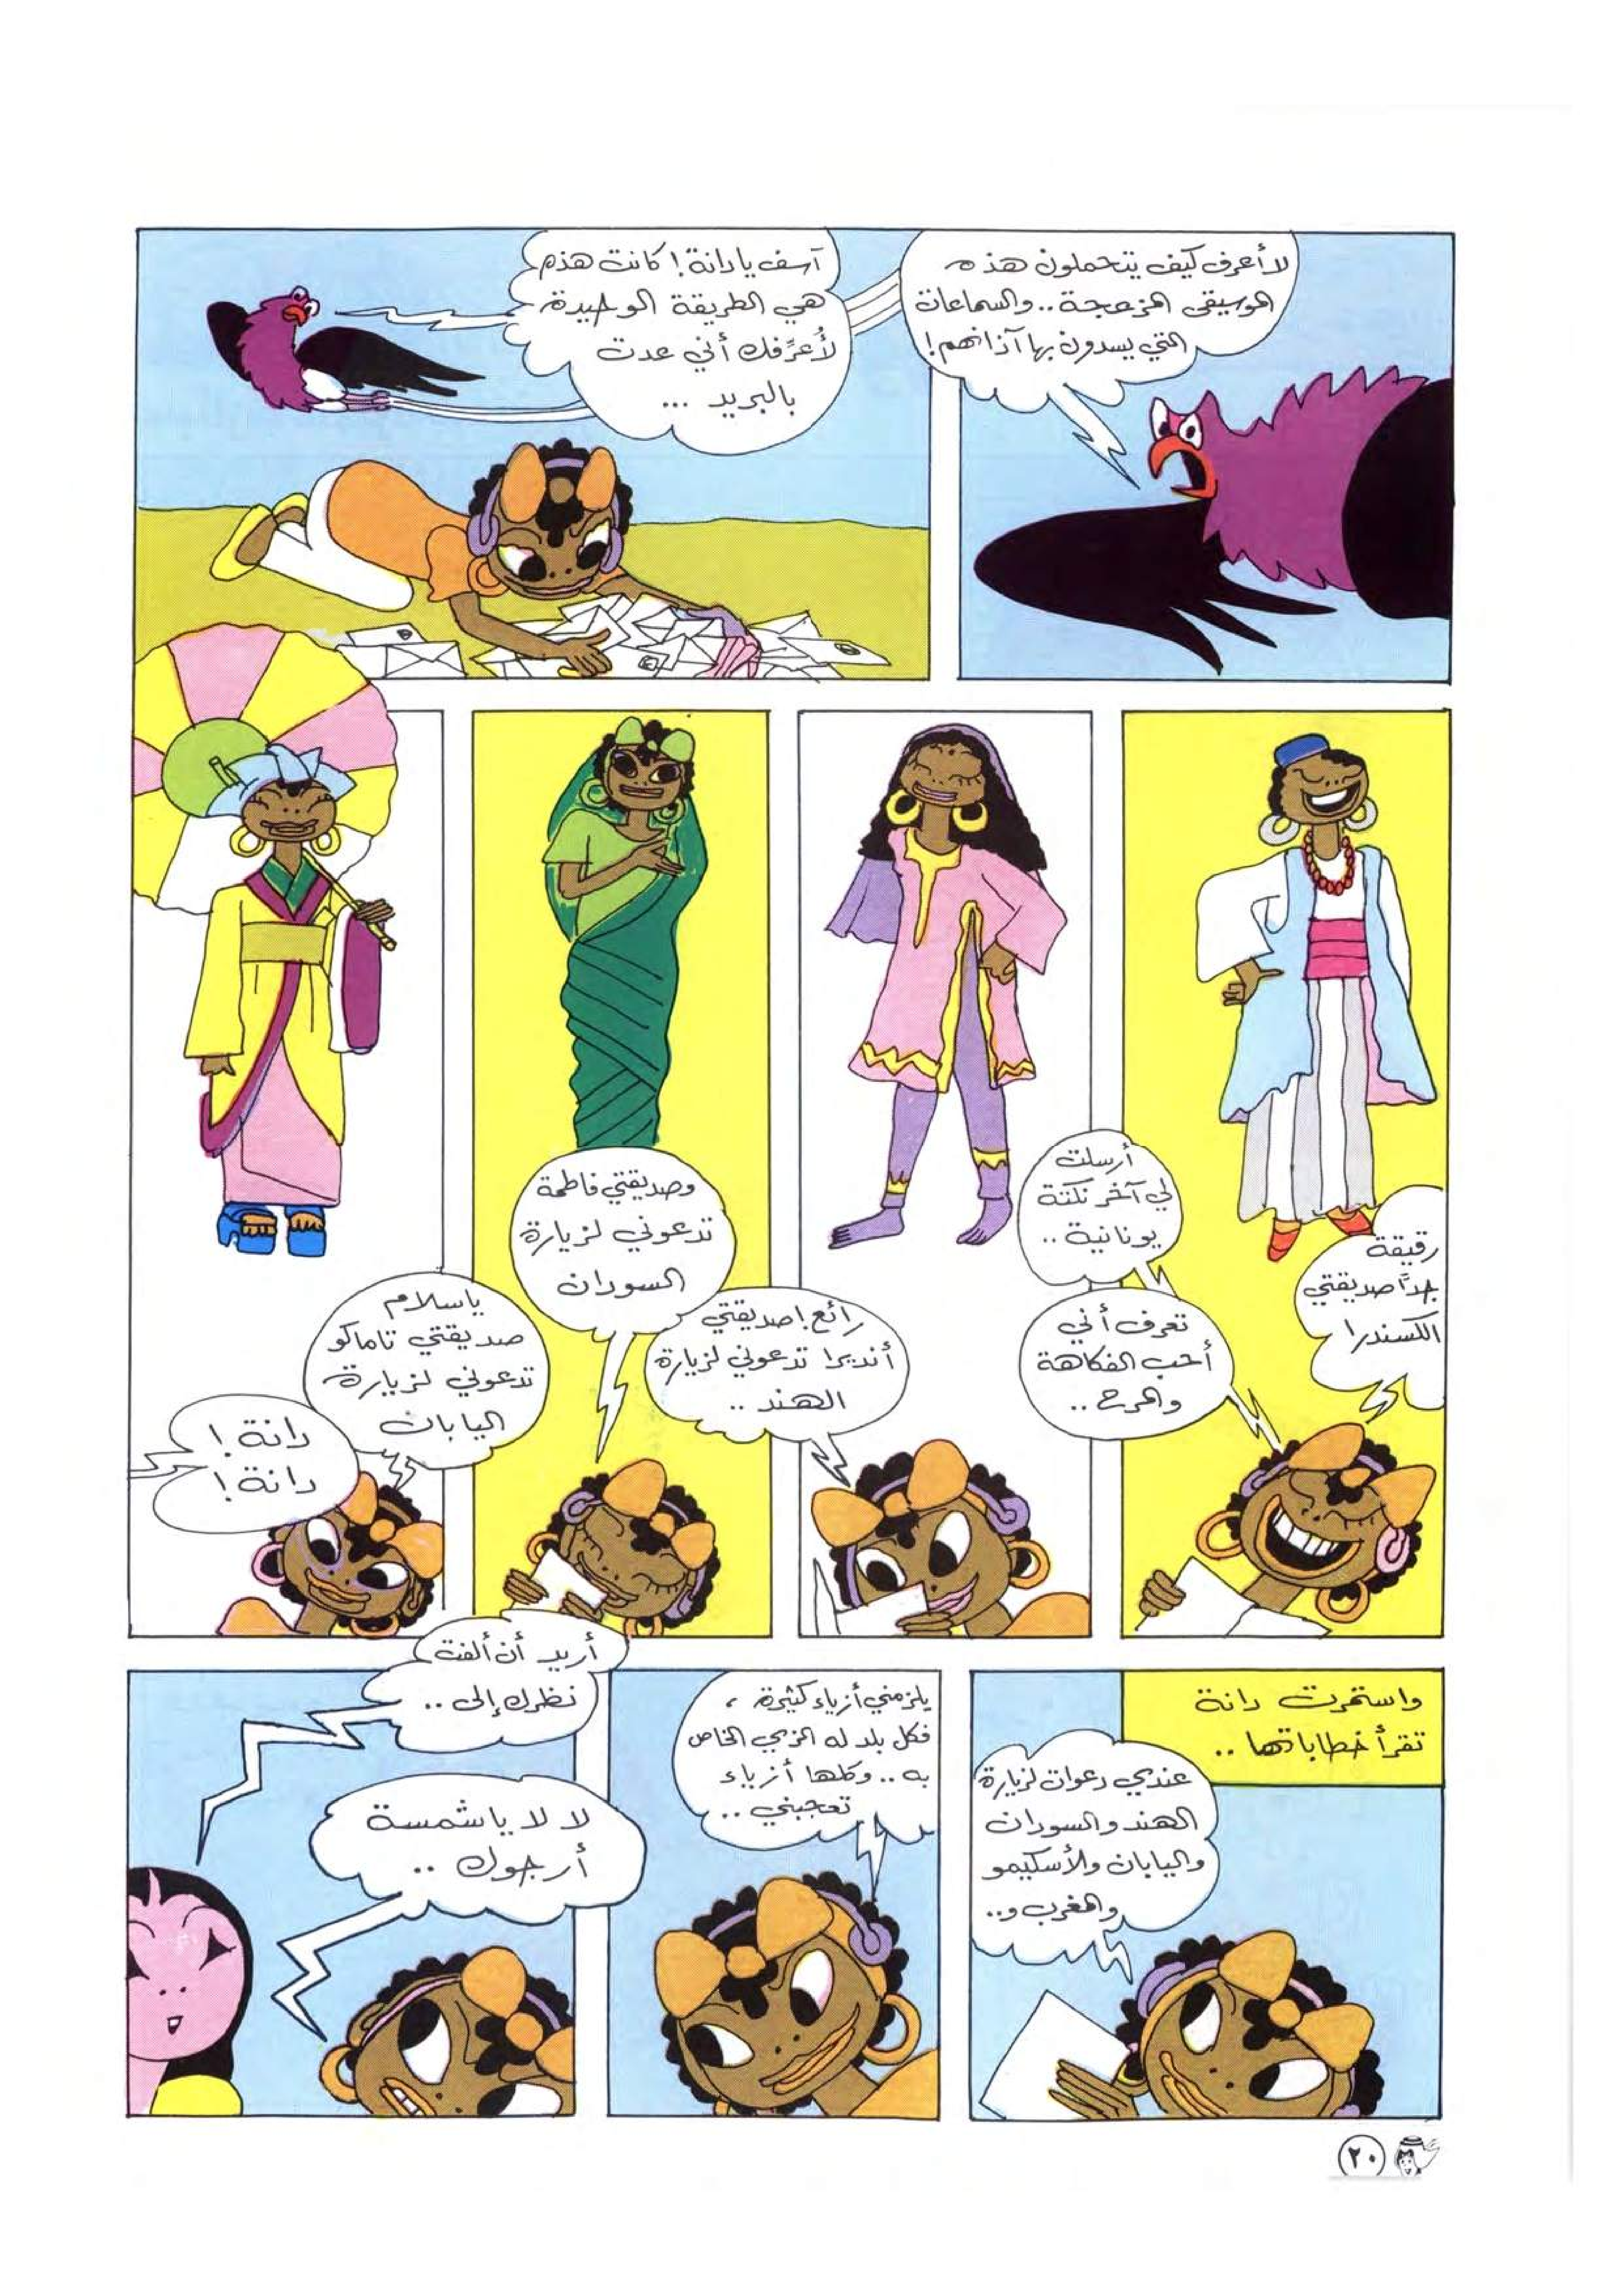 لا أعرف كيف يتحملون هذه
الموسيقى المزعجة.. والسماعات
التي يسدون بها آذانهم!
آسف يا دانة! كانت هذه
هي الطريقة الوحيدة
لأُعرِّفك أني عدت
بالبريد ...
رقيقة
جدًا صديقتي
الكسندرا
أرسلت
لي آخر نكتة
يونانية ..
تعرف أني
أحب الفكاهة
والمرح ..
رائع! صديقتي
أنديرا تدعوني لزيارة
الهند ..
وصديقتي فاطمة
تدعوني لزيارة
السودان
ياسلام
صديقتي تاماكو
تدعوني لزيارة
اليابان
دانة !
دانة !
واستمرت دانة
تقرأ خطاباتها ..
عندي دعوات لزيارة
الهند والسودان
واليابان والأسكيمو
والمغرب و..
يلزمني أزياء كثيرة ،
فكل بلد له الزي الخاص
به .. وكلها أزياء
تعجبني ..
أريد أن ألفت
نظرك إلى ..
لا لا يا شمسة
أرجوك ..
٢٠